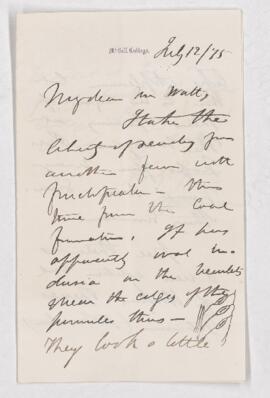 McGill College,
July 12/75
My dear Mr Watt,
I take the
liberty of sending you
another fern with
fructification - this
time from the Coal
formation. It has
apparently oval in-
dusia on the veinlets
near the edges of the
pinnules thus -
They look a little